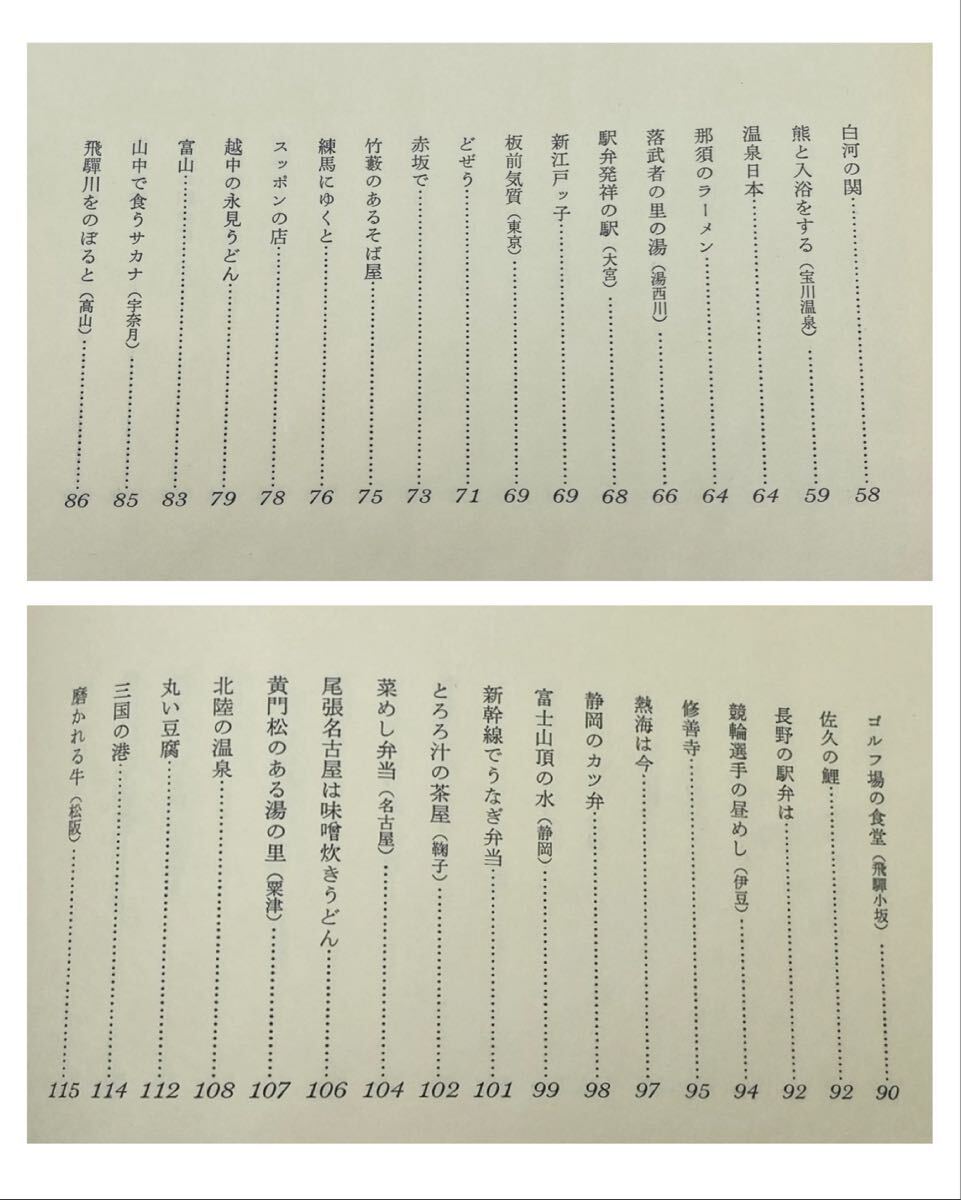 白河の関……58
熊と入浴をする（宝川温泉）……59
温泉日本……64
那須のラーメン……64
落武者の里の湯（湯西川）……66
駅弁発祥の駅（大宮）……68
新江戸ッ子……69
板前気質（東京）……69
どぜう……71
赤坂で……73
竹藪のあるそば屋……75
練馬にゆくと……76
スッポンの店……78
越中の永見うどん……79
富山……83
山中で食うサカナ（宇奈月）……85
飛驒川をのぼると（高山）……86
ゴルフ場の食堂（飛驒小坂）……90
佐久の鯉……92
長野の駅弁は……92
競輪選手の昼めし（伊豆）……94
修善寺……95
熱海は今……97
静岡のカツ弁……98
富士山頂の水（静岡）……99
新幹線でうなぎ弁当……101
とろろ汁の茶屋（鞠子）……102
菜めし弁当（名古屋）……104
尾張名古屋は味噌炊きうどん……106
黄門松のある湯の里（粟津）……107
北陸の温泉……108
丸い豆腐……112
三国の港……114
磨かれる牛（松阪）……115